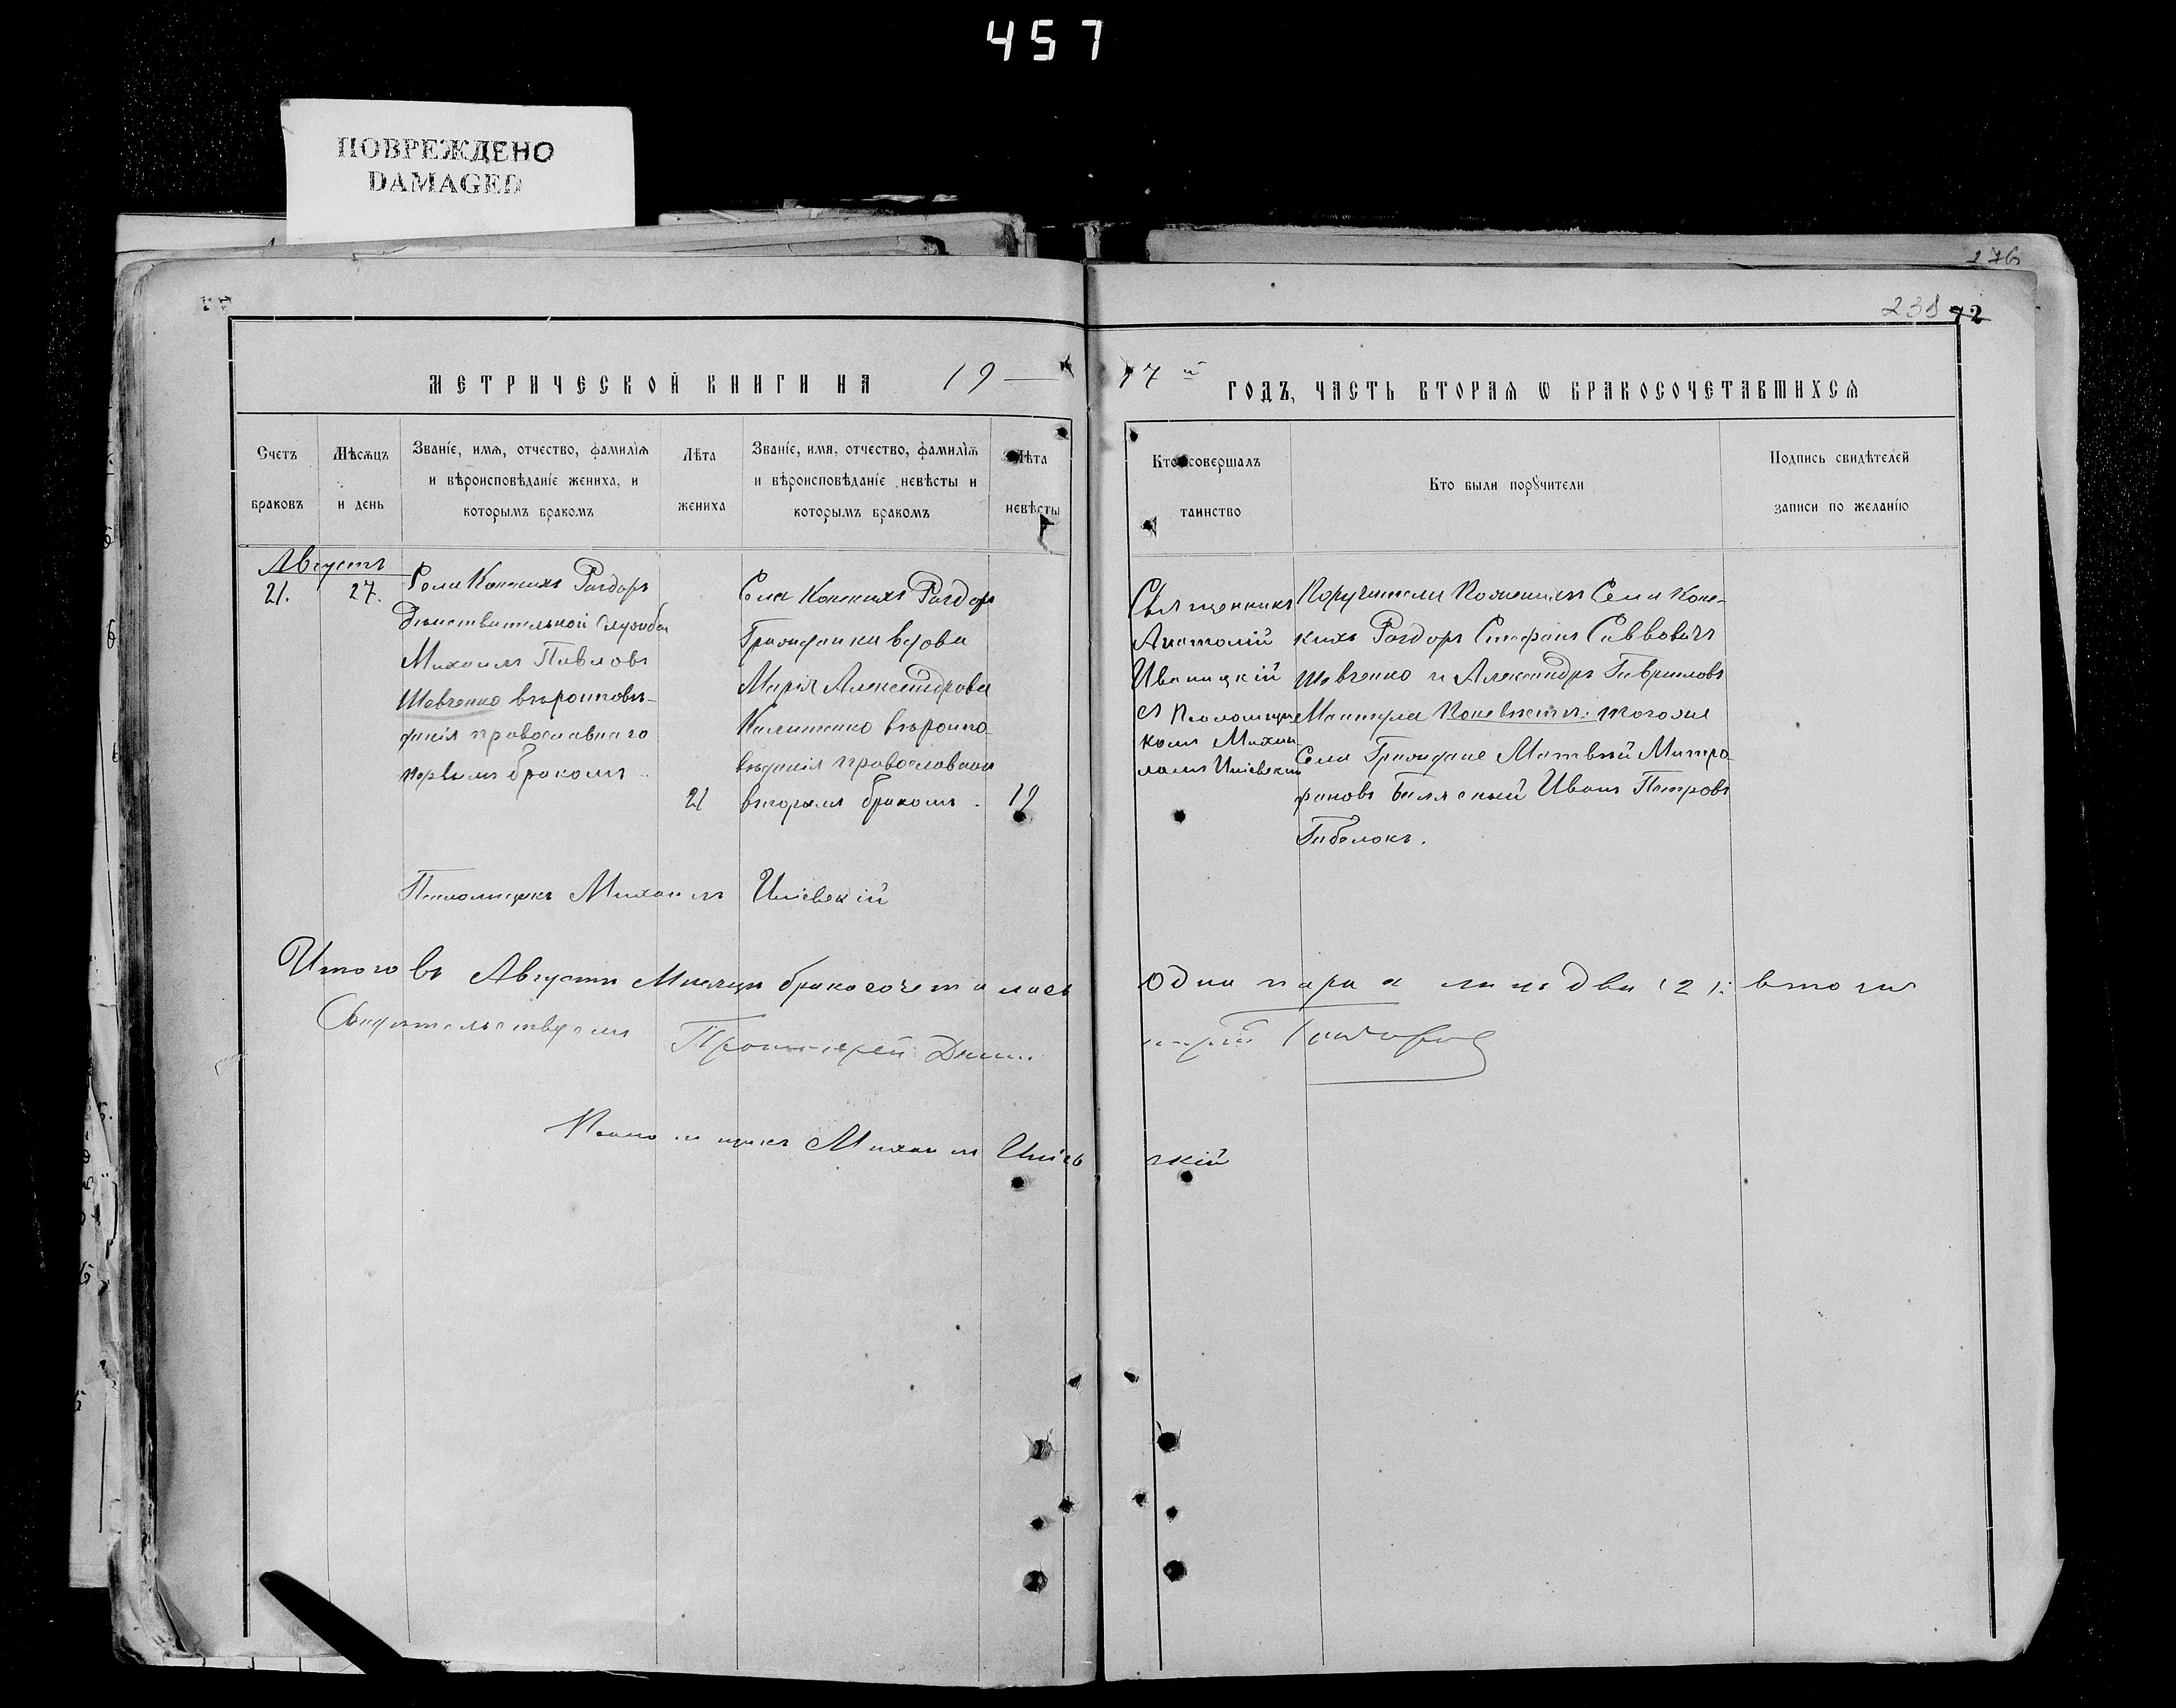 457
ПОВРЕЖДЕНО
DAMAGED
276
238 72
МЕТРИЧЕСКОЙ КНИГИ НА 19—17й ГОДЪ, ЧАСТЬ ВТОРАЯ Ѡ БРАКОСОЧЕТАВШИХСЯ
Счетъ браковъ
Мѣсяцъ и день
Званіе, имя, отчество, фамилія
и вѣроисповѣданіе жениха, и
которымъ бракомъ
Лѣта жениха
Званіе, имя, отчество, фамилія
и вѣроисповѣданіе невѣсты и
которымъ бракомъ
Лѣта невѣсты
Кто совершалъ таинство
Кто были порꙋчители
Подпись свидѣтелей
записи по желанію
Августъ
21.
27.
Села Конскихъ Раздоръ
Дѣйствительной службы
Михаилъ Павловъ
Шевченко вѣроисповѣ-
данія православнаго
первымъ бракомъ
21
Села Конскихъ Раздоръ
Гражданка вдова
Марія Александрова
вѣроиспо-
вѣданія православнаго
вторымъ бракомъ.
19
Священникъ
Анатолій
Иваницкій
съ Псаломщи-
комъ Михаи-
ломъ
Поручители По женихѣ Села Конс-
кихъ Раздоръ Стефанъ Саввовичъ
Шевченко и Александръ Гавриловъ
По невѣстѣ: того же
Села Граждане Матвѣй Митро-
фановъ Иванъ Петровъ
Псаломщикъ Михаилъ
Итого въ Августѣ Мѣсяцѣ бракосочеталась одна пара а лицъ два (2):
Свидѣтельствуемъ
Протоіерей
Псаломщикъ Михаилъ